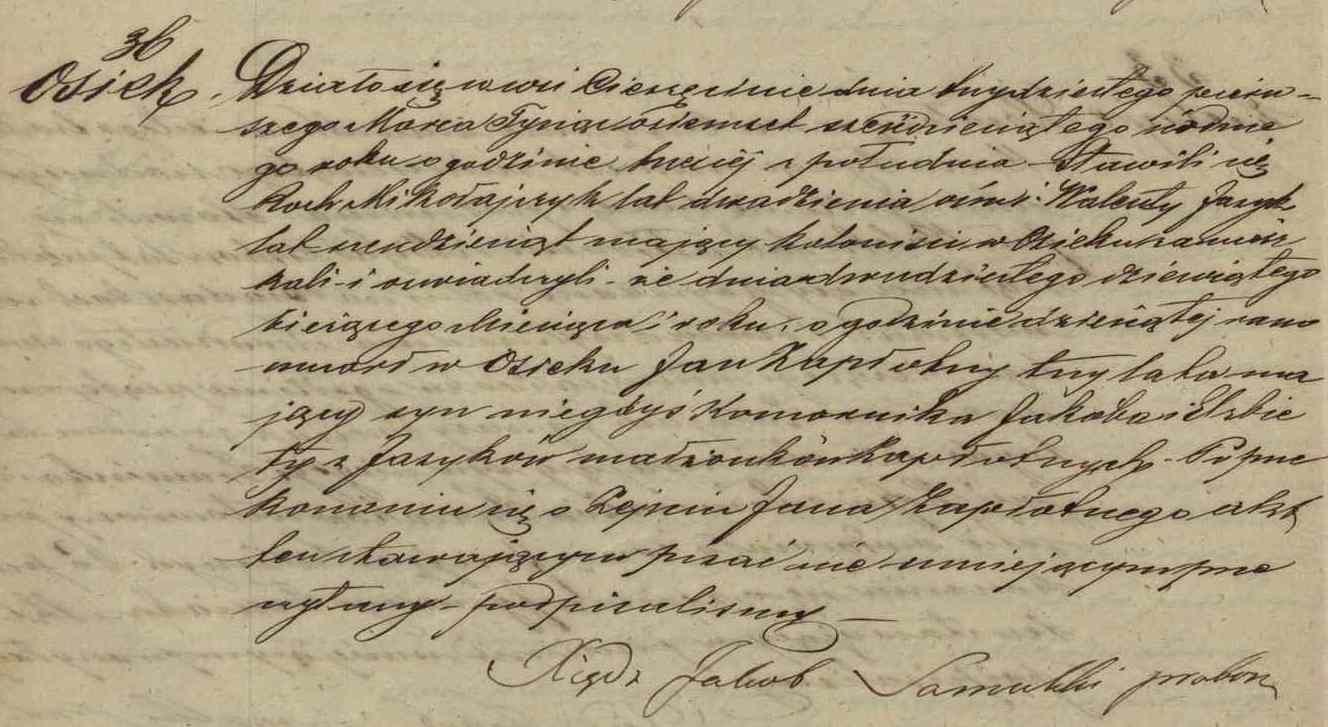 36
Osiek. Działo się w wsi Cieszęcinie dnia trzydziestego pierw-
szego Marca Tysiąc ośiemset sześćdziesiątego siódme
go roku o godzinie trzeciej z południa - Stawili się
Roch Mikołajczyk lat dwadzieścia ośm i Walenty Jasyk
lat sześćdziesiąt mający koloniści w Osieku zamiesz
kali - i oświadczyli - że dnia dwudziestego dziewiątego
bieżącego Miesiąca i roku, o godzinie dziesiątej rano
umarł w Osieku Jan Zapłotny trzy lata ma
jący syn niegdyś Komornika Jakóba i Elżbie
ty z Jasyków małżonków Zapłotnych - Po prze
konaniu się o Zejściu Jana Zapłotnego akt
ten stawającym pisać nie umiejącym prze
czytany - podpisaliśmy —
Xiądz Jakob proboszcz